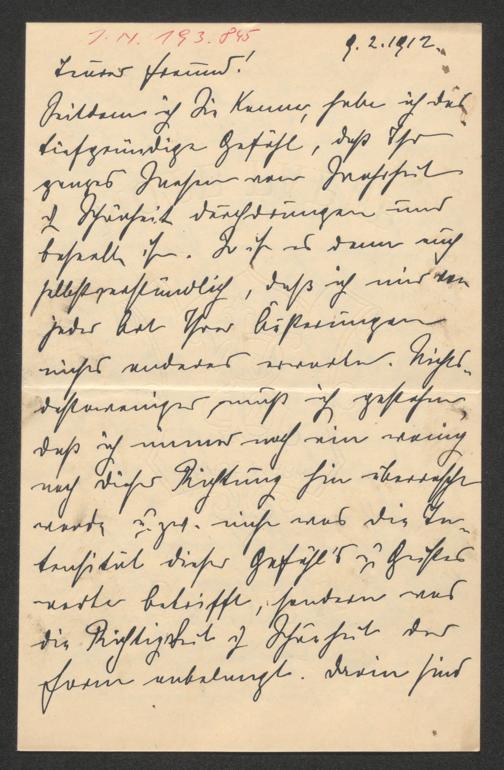 I. N. 193.845
9.2.1912.
Teurer Freund!
Seitdem ich Sie kenne, habe ich das
tiefgründige Gefühl, daß Ihr
ganzes Wesen von Wahrheit
& Schönheit durchdrungen und
beseelt ist. So ist es denn auch
selbstverständlich, daß ich mir von
jeder Art Ihrer Äußerungen
nichts anderes erwarte. Nichts-
destoweniger muß ich gestehen
daß ich immer noch ein wenig
nach dieser Richtung hin überrascht
werde u. zw. nicht was die In-
tensität dieser Gefühls u Geistes
werte betrifft, sondern was
die Richtigkeit & Schönheit der
Form anbelangt. Darin sind